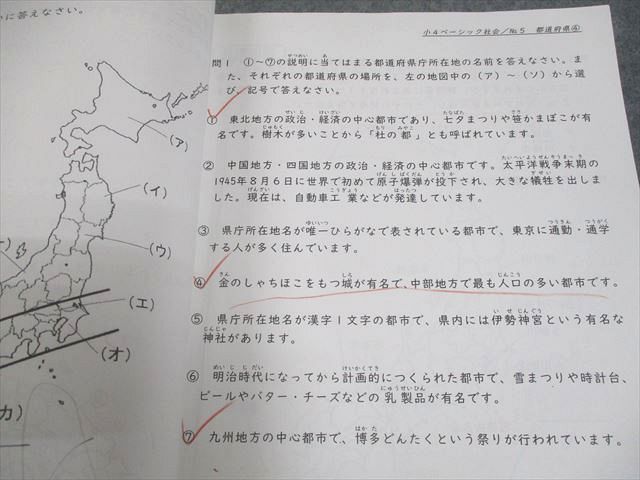 に答えなさい。
小4ベーシック社会/№5 都道府県④
問1 ①～⑦の説明に当てはまる都道府県庁所在地の名前を答えなさい。ま
た、それぞれの都道府県の場所を、左の地図中の(ア)～(ソ)から選
び、記号で答えなさい。
① 東北地方の政治・経済の中心都市であり、七夕まつりや笹かまぼこが有
名です。樹木が多いことから「杜の都」とも呼ばれています。
② 中国地方・四国地方の政治・経済の中心都市です。太平洋戦争末期の
1945年8月6日に世界で初めて原子爆弾が投下され、大きな犠牲を出しま
した。現在は、自動車工業などが発達しています。
③ 県庁所在地名が唯一ひらがなで表されている都市で、東京に通勤・通学
する人が多く住んでいます。
④ 金のしゃちほこをもつ城が有名で、中部地方で最も人口の多い都市です。
⑤ 県庁所在地名が漢字1文字の都市で、県内には伊勢神宮という有名な
神社があります。
⑥ 明治時代になってから計画的につくられた都市で、雪まつりや時計台、
ビールやバター・チーズなどの乳製品が有名です。
⑦ 九州地方の中心都市で、博多どんたくという祭りが行われています。
(ア)
(イ)
(ウ)
(エ)
(オ)
カ)